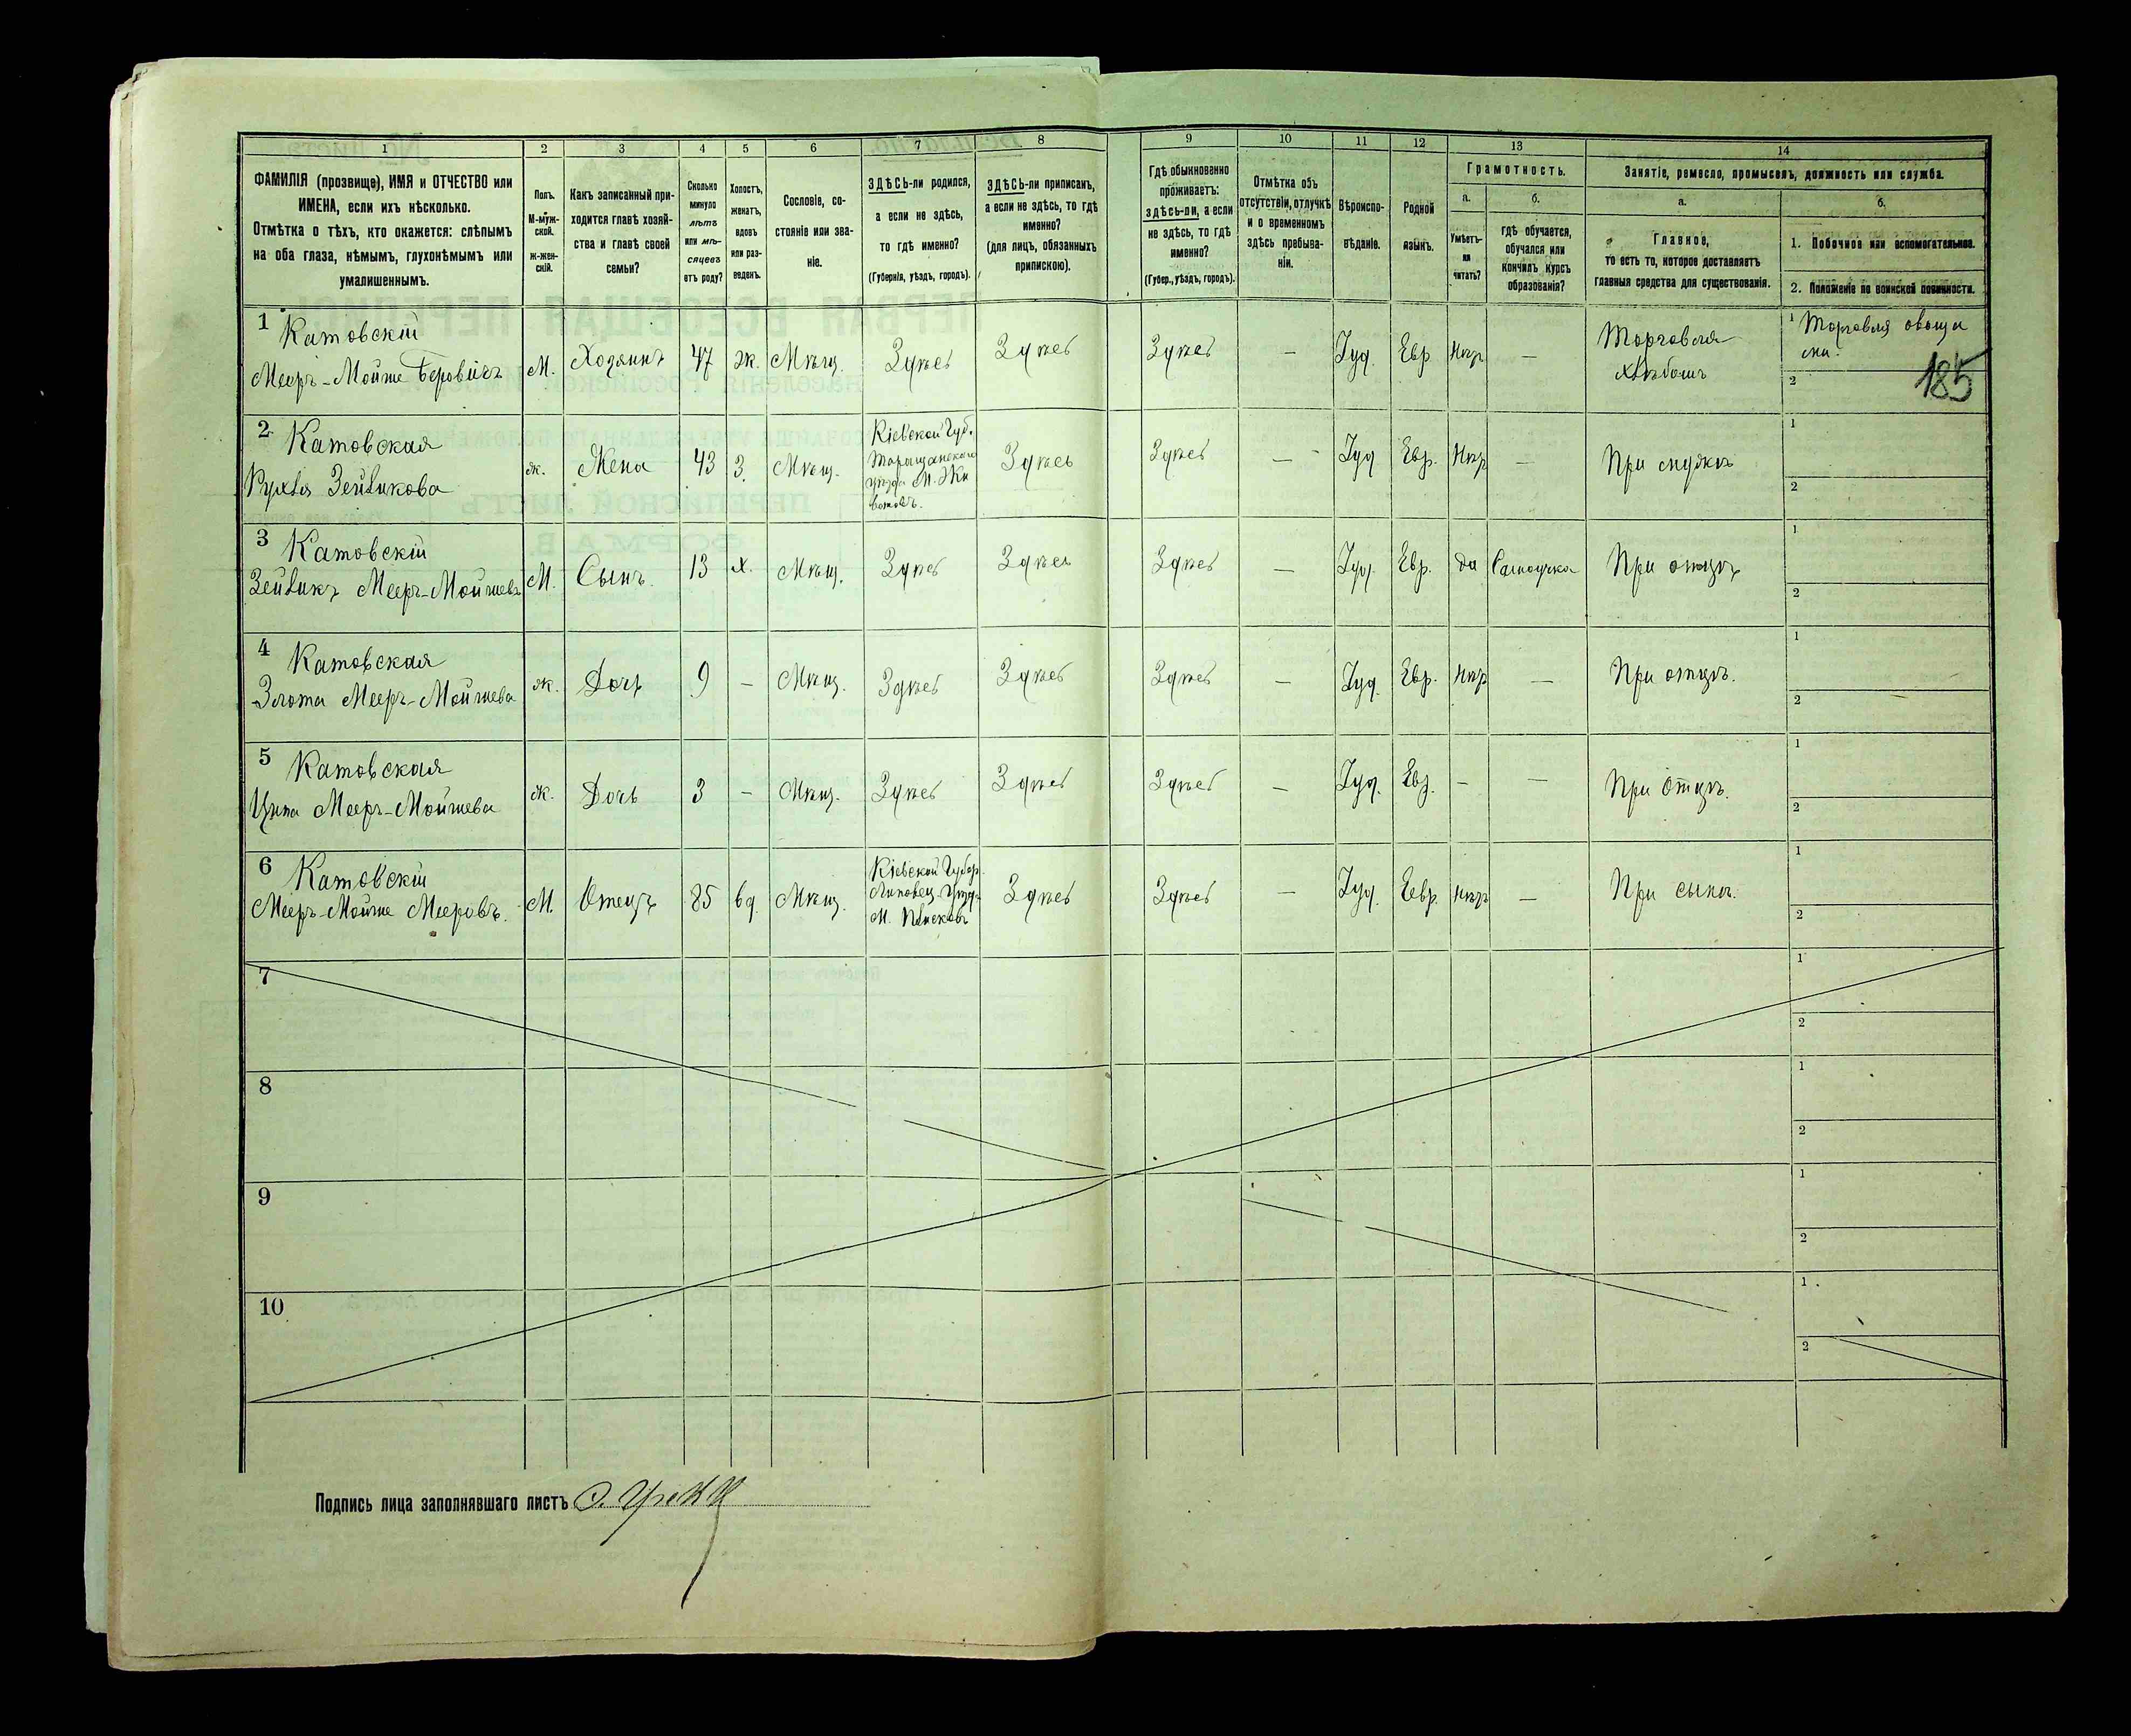 1 2 3 4 5 6 7 8 9 10 11 12 13 14
ФАМИЛІЯ (прозвище), ИМЯ и ОТЧЕСТВО или
ИМЕНА, если ихъ нѣсколько.
Отмѣтка о тѣхъ, кто окажется: слѣпымъ
на оба глаза, нѣмымъ, глухонѣмымъ или
умалишеннымъ.
Полъ.
М-муж-
ской.
ж-жен-
скій.
Какъ записанный при-
ходится главѣ хозяй-
ства и главѣ своей
семьи?
Сколько
минуло
лѣтъ
или мѣ-
сяцевъ
отъ роду?
Холостъ,
женатъ,
вдовъ
или раз-
веденъ.
Сословіе, со-
стояніе или зва-
ніе.
ЗДѢСЬ-ли родился,
а если не здѣсь,
то гдѣ именно?
(Губернія, уѣздъ, городъ).
ЗДѢСЬ-ли приписанъ,
а если не здѣсь, то гдѣ
именно?
(для лицъ, обязанныхъ
припискою).
Гдѣ обыкновенно
проживаетъ:
здѣсь-ли, а если
не здѣсь, то гдѣ
именно?
(Губер., уѣздъ, городъ).
Отмѣтка объ
отсутствіи, отлучкѣ
и о временномъ
здѣсь пребыва-
ніи.
Вѣроиспо-
вѣданіе.
Родной
языкъ.
Грамотность.
а.
Умѣетъ-
ли
читать?
б.
гдѣ обучается,
обучался или
кончилъ курсъ
образованія?
Занятіе, ремесло, промыселъ, должность или служба.
а.
Главное,
то есть то, которое доставляетъ
главныя средства для существованія.
б.
1. Побочное или вспомогательное.
2. Положеніе по воинской повинности.
1 Катовскій
Мееръ-Мойше Беровичъ М. Хозяинъ 47 Ж. Мѣщ. Здѣсь Здѣсь Здѣсь — Іуд. Евр. Нѣтъ —
Торговля
хлѣбомъ
1 Торговля овоща
ми.
2
185
2 Катовская
Рухля Зейликова ж. Жена 43 З. Мѣщ.
Кіевской Губ.
Таращанскаго
уѣзда М. Жи
вотовъ.
Здѣсь Здѣсь — Іуд Евр. Нѣтъ — При мужѣ
1
2
3 Катовскій
Зейликъ Мееръ-Мойшевъ М. Сынъ. 13 х. Мѣщ. Здѣсь Здѣсь Здѣсь — Іуд. Евр. да Самоучка При отцѣ
1
2
4 Катовская
Злота Мееръ-Мойшева ж. Дочь 9 — Мѣщ. Здѣсь Здѣсь Здѣсь — Іуд. Евр. Нѣтъ — При отцѣ.
1
2
5 Катовская
Ципа Мееръ-Мойшева ж. Дочь 3 — Мѣщ. Здѣсь Здѣсь Здѣсь — Іуд. Евр. — — При Отцѣ.
1
2
6 Катовскій
Мееръ-Мойше Мееровъ. М. Отецъ 85 вд. Мѣщ.
Кіевской Губер.
Липовец. Уѣзд.
М.
Здѣсь Здѣсь — Іуд. Евр. Нѣтъ — При сынѣ.
1
2
7
1
2
8
1
2
9
1
2
10
1
2
Подпись лица заполнявшаго листъ